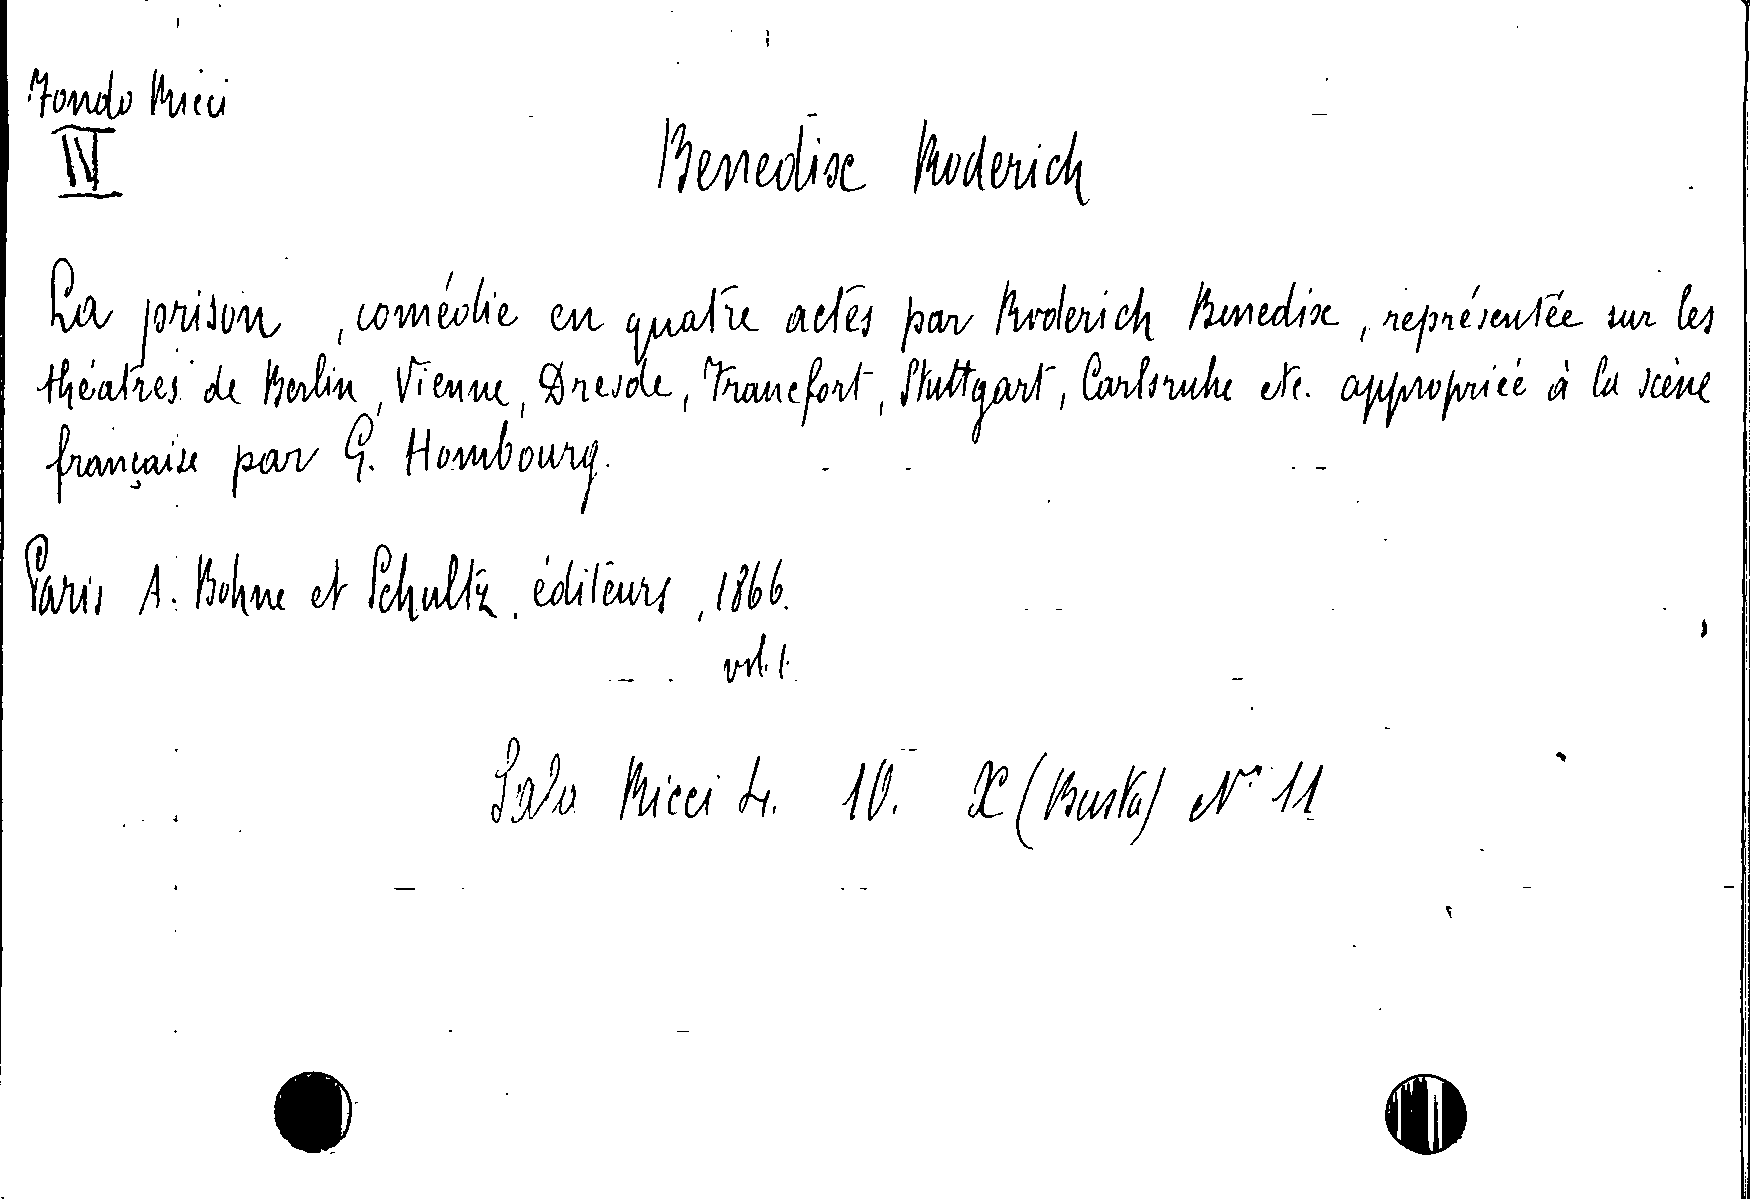 Fondo Ricci
IV
Benedix Roderich
La prison, comédie en quatre actes par Roderich Benedix, représentée sur les
théatres de Berlin, Vienne, Dresde, Francfort, Stuttgart, Carlsruhe etc. appropriée à la scène
française par G. Hombourg.
Paris A. Bohne et Schultz, éditeurs, 1866.
vol. 1.
Sala Ricci 4. 10. X (Busta) N° 11